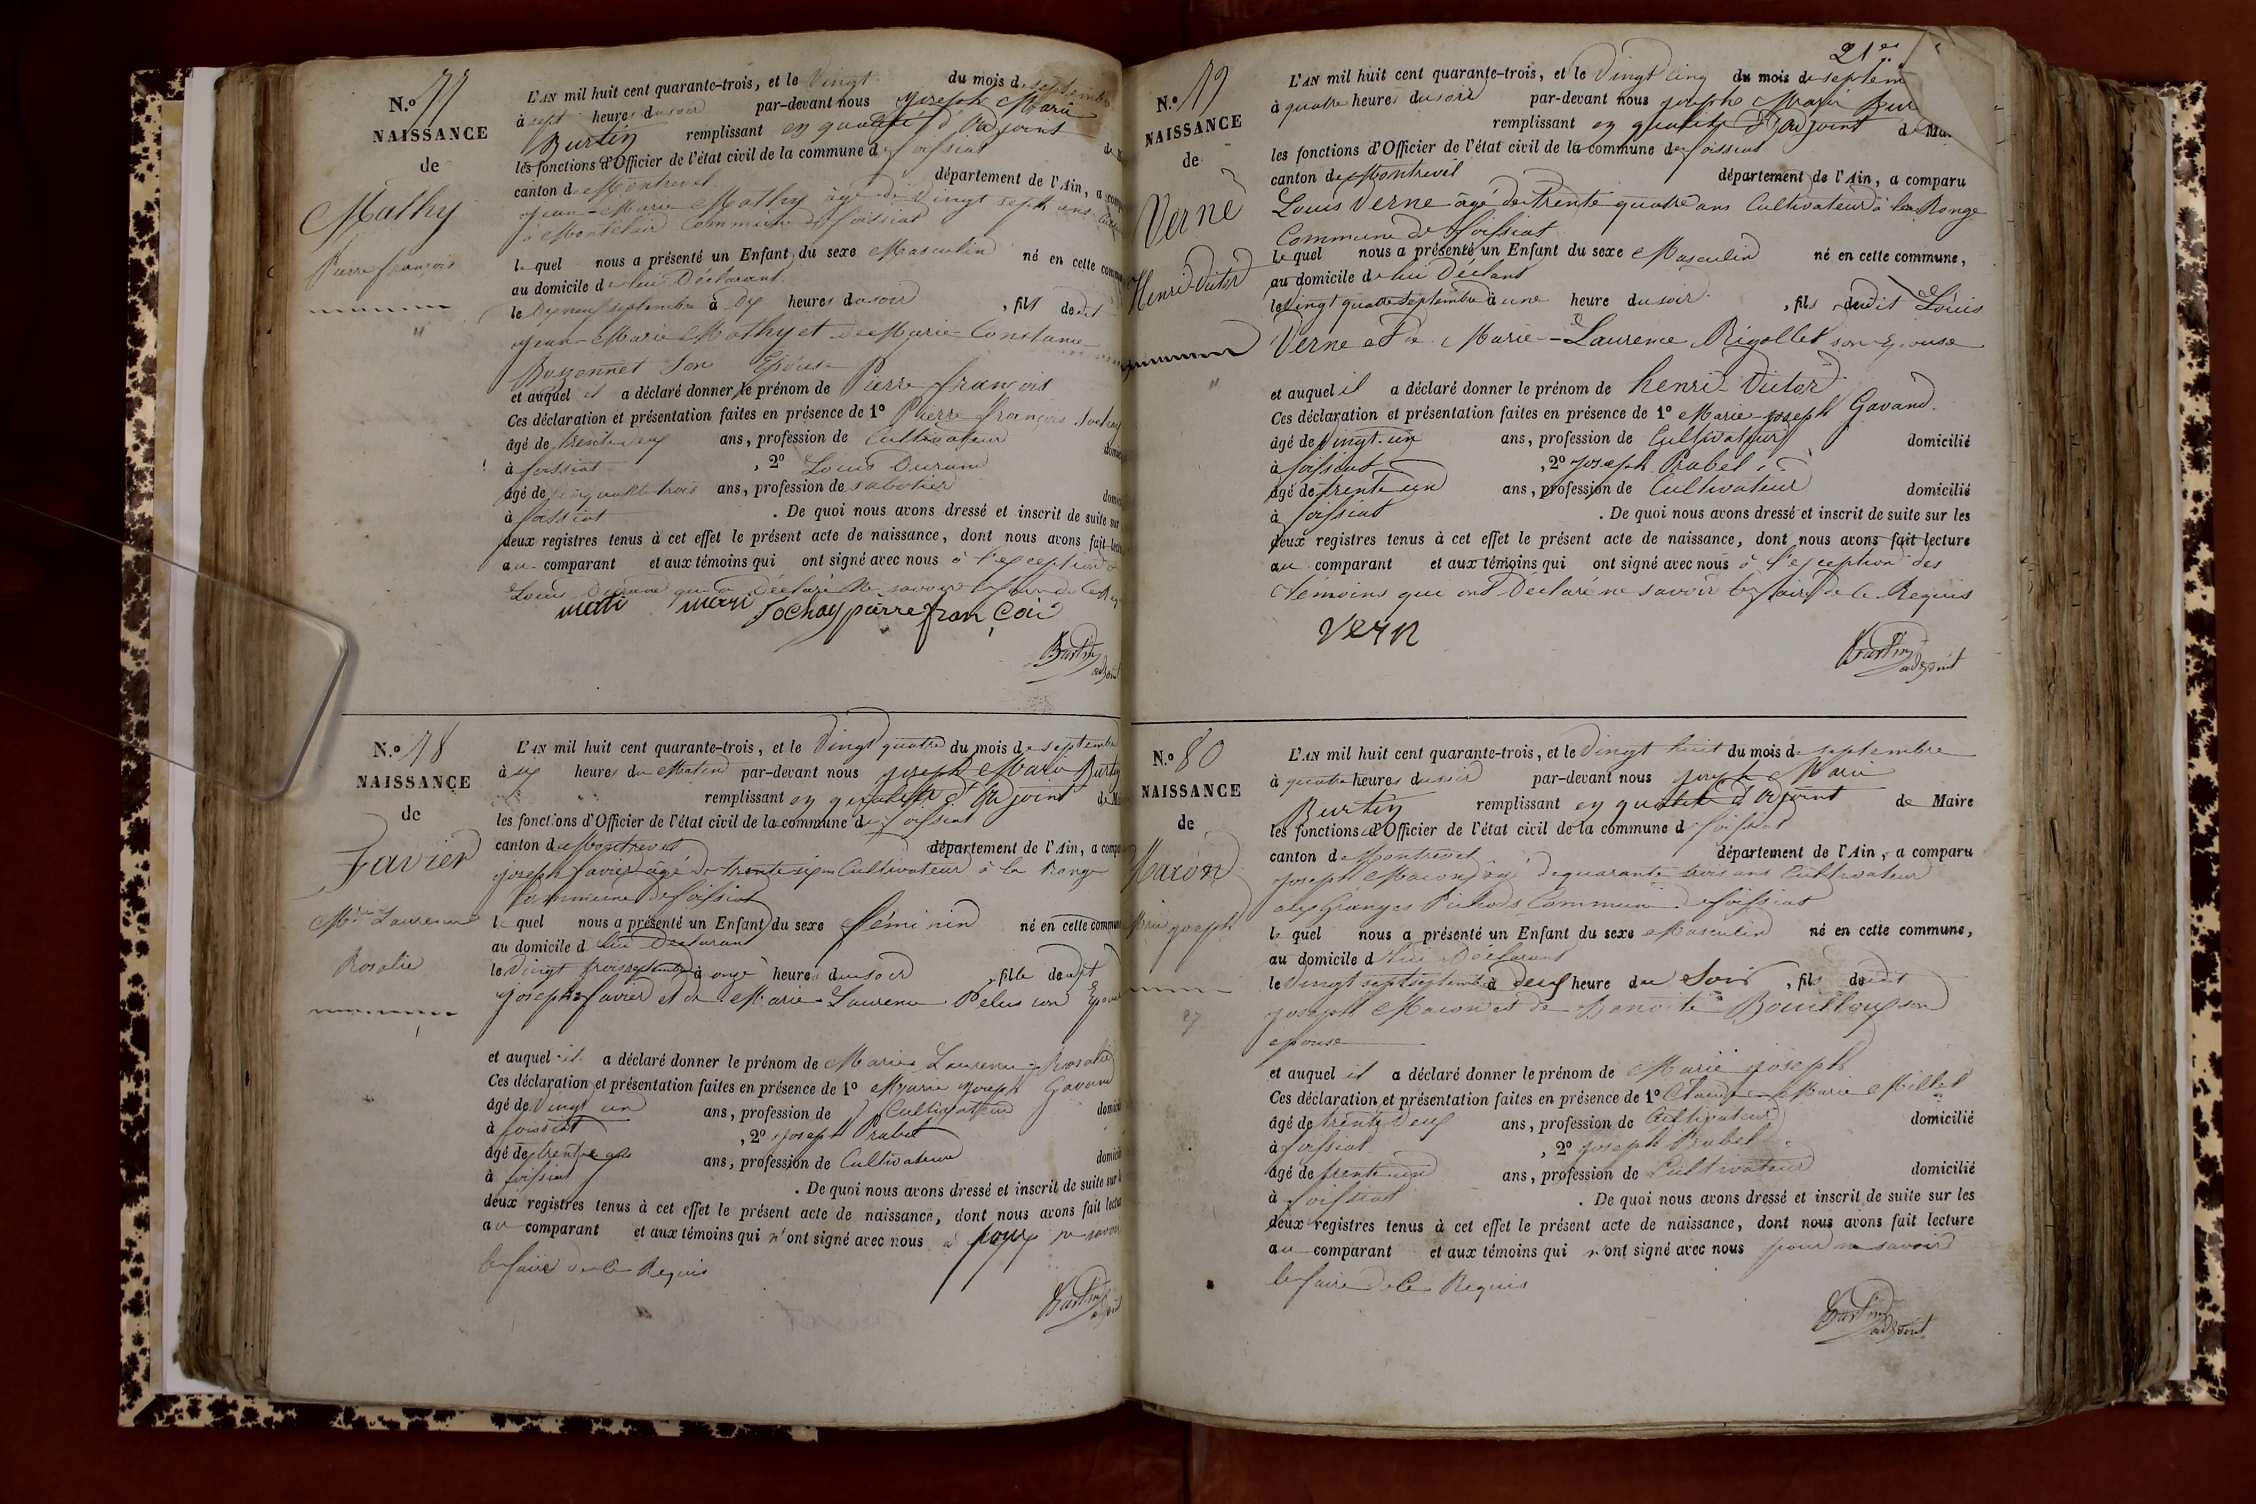 N.º 77
NAISSANCE
de
Mathy
Pierre françois
L'AN mil huit cent quarante-trois, et le Vingt du mois de septembre
à sept heures du soir par-devant nous joseph Marie
Burtin remplissant en qualité d'Adjoint
les fonctions d'Officier de l'état civil de la commune de foissiat
canton de Montrevel département de l'Ain, a
jean-Marie Mathy âgé de Vingt sept ans
à Montclair Commune de foissiat
lequel nous a présenté un Enfant du sexe Masculin né en cette
au domicile de lui Déclarant
le Dix neuf septembre à Dix heures du soir, fils dudit
jean-Marie Mathy et de Marie-Constance
son Epouse
et auquel il a déclaré donner le prénom de Pierre françois
Ces déclaration et présentation faites en présence de 1º Pierre françois Sochay
âgé de ans, profession de Cultivateur
à foissiat, 2º Louis Durand
âgé de Cinquante trois ans, profession de sabotier
à foissiat. De quoi nous avons dressé et inscrit de suite sur
deux registres tenus à cet effet le présent acte de naissance, dont nous avons fait
au comparant et aux témoins qui ont signé avec nous à l'exception de
Louis Durand qui a Déclaré ne savoir le faire de ce
mati mari Sochay pierre françoi
Burtin
adjoint
N.º 78
NAISSANCE
de
favier
Mie Laurence
Rosalie
L'AN mil huit cent quarante-trois, et le Vingt quatre du mois de septembre
à six heures du Matin par-devant nous joseph Marie Burtin
remplissant en qualité d'Adjoint de
les fonctions d'Officier de l'état civil de la commune de foissiat
canton de Montrevel département de l'Ain, a
joseph favier âgé de trente six ans Cultivateur à la Ronge
Commune de foissiat
lequel nous a présenté un Enfant du sexe féminin né en cette
au domicile de lui Déclarant
le Vingt trois septembre à onze heures du soir, fille dudit
joseph favier et de Marie-Laurence Pelus son Epouse
et auquel il a déclaré donner le prénom de Marie Laurence-Rosalie
Ces déclaration et présentation faites en présence de 1º Marie joseph Gavand
âgé de Vingt un ans, profession de Cultivateur
à foissiat, 2º joseph Prabel
âgé de trente ans, profession de Cultivateur
à foissiat. De quoi nous avons dressé et inscrit de suite sur
deux registres tenus à cet effet le présent acte de naissance, dont nous avons fait
au comparant et aux témoins qui n'ont signé avec nous pour ne savoir
le faire de ce Requis
Burtin
adjoint
21
N.º 79
NAISSANCE
de
Verne
Henri-Victor
L'AN mil huit cent quarante-trois, et le Vingt Cinq du mois de septem
à quatre heures du soir par-devant nous joseph Marie Bur
remplissant en qualité d'Adjoint de
les fonctions d'Officier de l'état civil de la commune de foissiat
canton de Montrevel département de l'Ain, a comparu
Louis Verne âgé de Trente quatre ans Cultivateur à la Ronge
Commune de foissiat
lequel nous a présenté un Enfant du sexe Masculin né en cette commune,
au domicile de lui Déclant
le Vingt quatre septembre à une heure du soir, fils dudit Louis
Verne et de Marie-Laurence Rigollet son Epouse
et auquel il a déclaré donner le prénom de henri-Victor
Ces déclaration et présentation faites en présence de 1º Marie-joseph Gavand
âgé de Vingt-un ans, profession de Cultivateur domicilié
à foissiat, 2º joseph Prabel
âgé de trente un ans, profession de Cultivateur domicilié
à foissiat. De quoi nous avons dressé et inscrit de suite sur les
deux registres tenus à cet effet le présent acte de naissance, dont nous avons fait lecture
au comparant et aux témoins qui ont signé avec nous à l'exception des
Témoins qui ont Déclaré ne savoir le faire de ce Requis
Vern
Burtin
adjoint
N.º 80
NAISSANCE
de
Macon
Marie joseph
L'AN mil huit cent quarante-trois, et le Vingt huit du mois de septembre
à quatre heures du soir par-devant nous joseph Marie
Burtin remplissant en qualité d'Adjoint de Maire
les fonctions d'Officier de l'état civil de la commune de foissiat
canton de Montrevel département de l'Ain, a comparu
joseph Macon âgé de quarante trois ans Cultivateur
aux Granges Commune de foissiat
lequel nous a présenté un Enfant du sexe Masculin né en cette commune,
au domicile de lui Déclarant
le Vingt sept septembre à deux heure du Soir, fils dudit
joseph Macon et de Benoite Bouilloux son
epouse
et auquel il a déclaré donner le prénom de Marie joseph
Ces déclaration et présentation faites en présence de 1º Claude-Marie Millet
âgé de trente Deux ans, profession de Cultivateur domicilié
à foissiat, 2º joseph Prabel
âgé de trente un ans, profession de Cultivateur domicilié
à foissiat. De quoi nous avons dressé et inscrit de suite sur les
deux registres tenus à cet effet le présent acte de naissance, dont nous avons fait lecture
au comparant et aux témoins qui n'ont signé avec nous pour ne savoir
le faire de Ce Requis
Burtin
adjoint